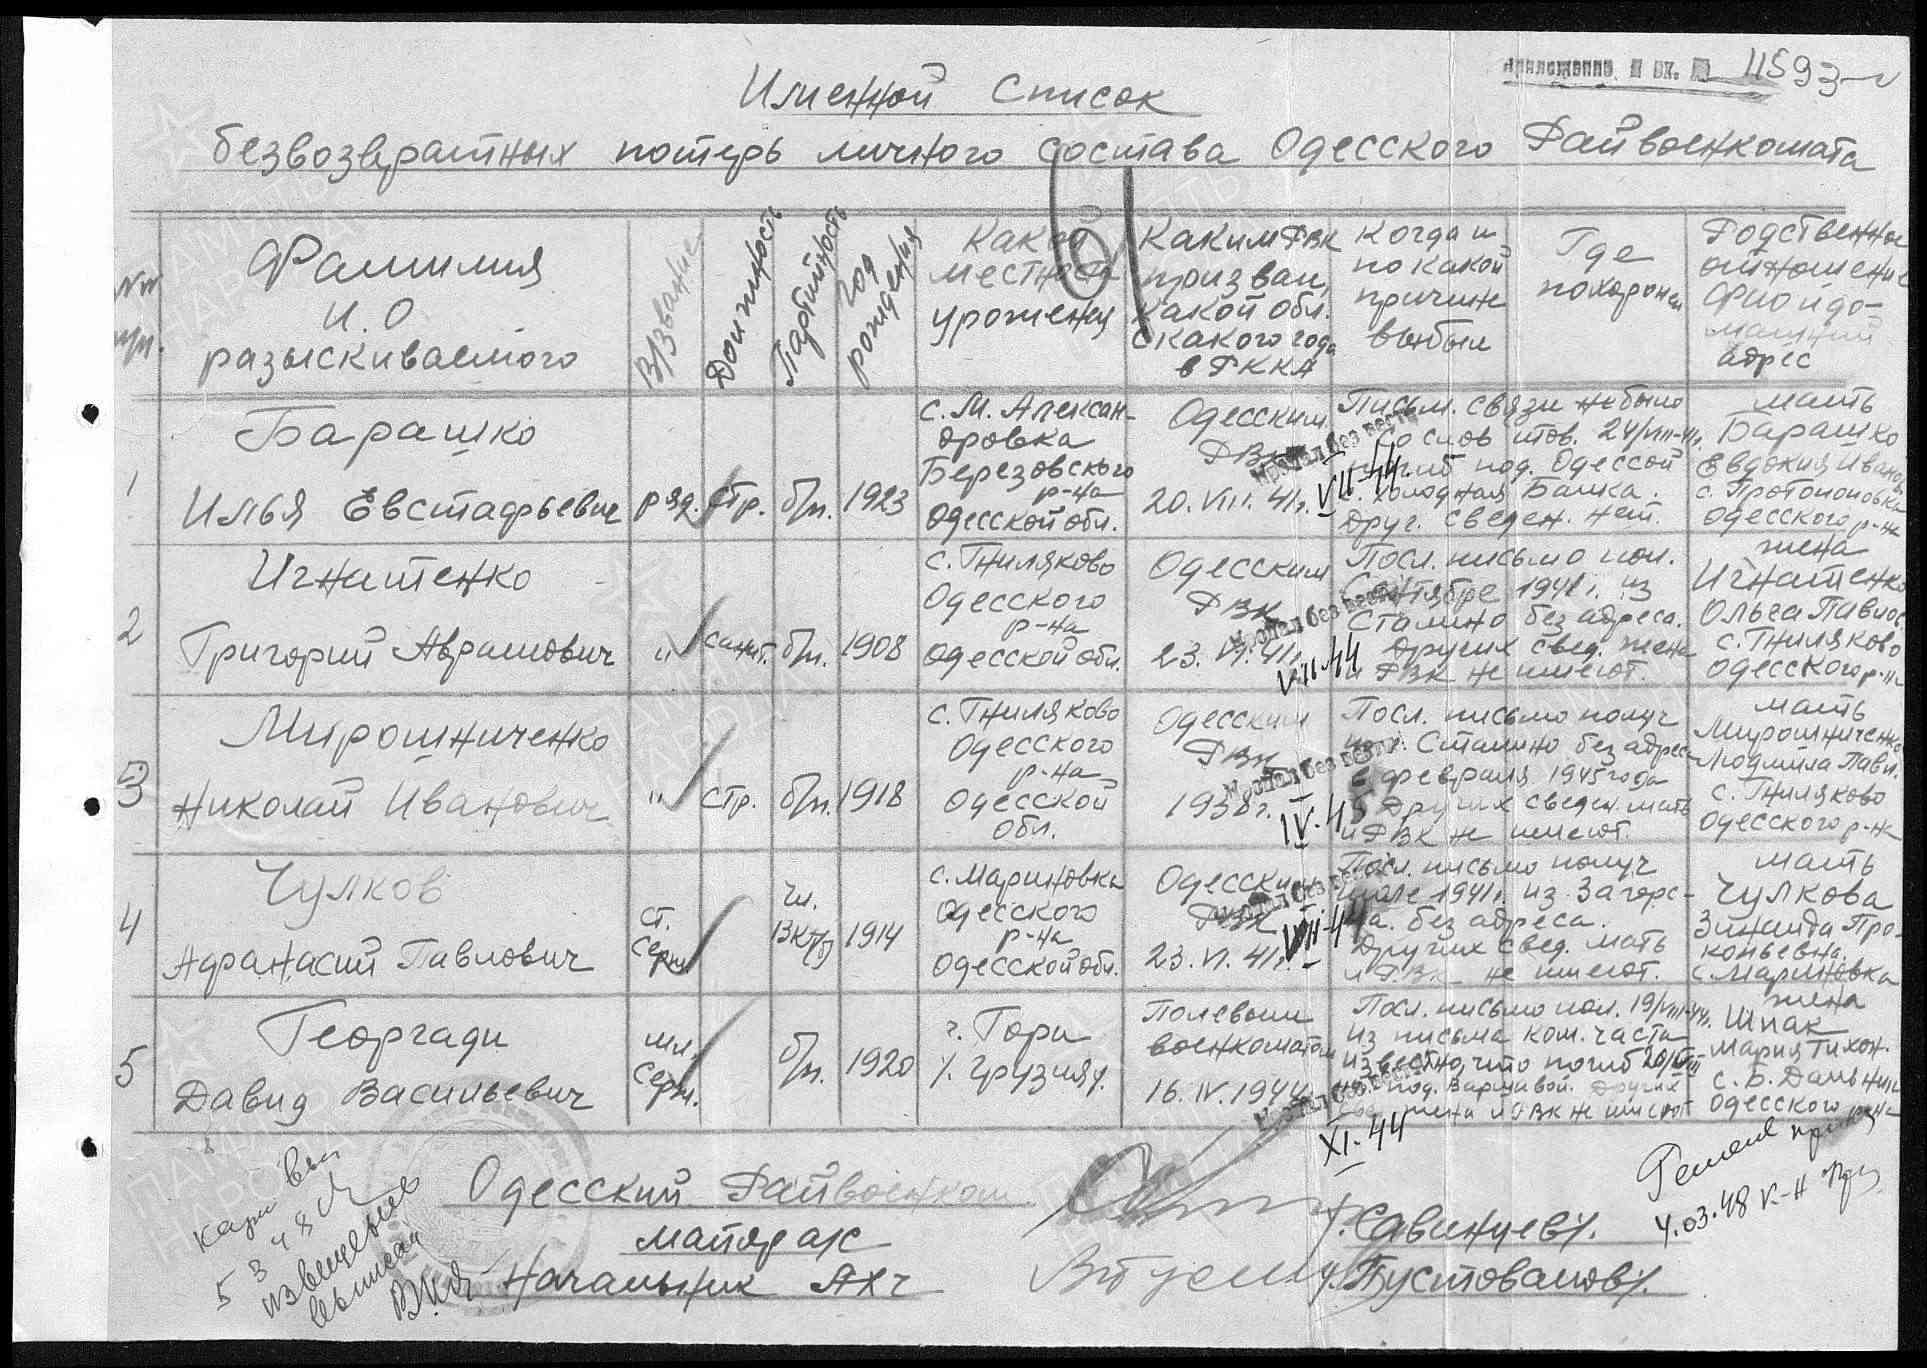 Приложение к вх. № 11593-с
Именной список
безвозвратных потерь личного состава Одесского Райвоенкомата
№№ п/п.
Фамилия
И.О.
разыскиваемого
В/звание
Должность
Партийность
год рождения
Какой
местности
уроженец
Каким РВК
призван,
какой обл.
с какого года
в РККА
Когда и
по какой
причине
выбыл
Где
похоронен
Родственное
отношение
ФИО и до-
машний
адрес
1
Барашко
Илья Евстафьевич
ряд.
стр.
б/п.
1923
с. М. Алексан-
дровка
Березовского
р-на
Одесской обл.
Одесским
РВК
20.VIII.41г.
Пропал без вести
VII-44
Письм. связи не было
Со слов тов. 24/VIII-41г.
погиб под. Одессой
с. Холодная Балка.
Друг. сведен. нет.
мать
Барашко
Евдокия Иванов
с. Протопоповка
Одесского р-на
2
Игнатенко
Григорий Аврамович
"
санит.
б/п.
1908
с. Гниляково
Одесского
р-на
Одесской обл.
Одесским
РВК
23.VI.41г.
Пропал без вести
VII-44
Посл. письмо пол.
Сентябре 1941г. из
Сталино без адреса.
Других свед. жена
и РВК не имеют.
жена
Игнатенко
Ольга Павлов.
с. Гниляково
Одесского р-на
3
Мирошниченко
Николай Иванович
"
стр.
б/п.
1918
с. Гниляково
Одесского
р-на
Одесской
Обл.
Одесским
РВК
1938г.
Пропал без вести
IV-45
Посл. письмо получ
из г. Сталино без адреса
в февраля 1945 года
Других сведен. мать
и РВК не имеют.
мать
Мирошниченко
Людмила Павл.
с. Гниляково
Одесского р-на
4
Чулков
Афанасий Павлович
ст.
серж.
чл.
ВКП/б
1914
с. Мариновка
Одесского
р-на
Одесской обл.
Одесским
РВК
23.VI.41г.
Пропал без вести
VIII-44
Посл. письмо получ
июле 1941г. из Загорс-
ка. без адреса.
Других свед. мать
и РВК не имеют.
мать
Чулкова
Зинаида Про-
копьевна.
с. Мариновка
5
Георгади
Давид Васильевич
мл.
серж.
б/п.
1920
г. Гори
/. Грузия/.
Полевым
военкоматом
16.IV.1944
Пропал без вести
XI-44
Посл. письмо пол. 19/VIII-44.
из письма ком. части
известно, что погиб 20/VIII
под. Варшавой. Других
жена и РВК не имеют
жена
Шпак
Мария Тихон.
с. Б. Дальник
Одесского р-на
Одесский Райвоенком
майор а/с
/. Савинцев/.
Начальник АХЧ
/. Пустовалов/.
извещение
4.03.48 к-н